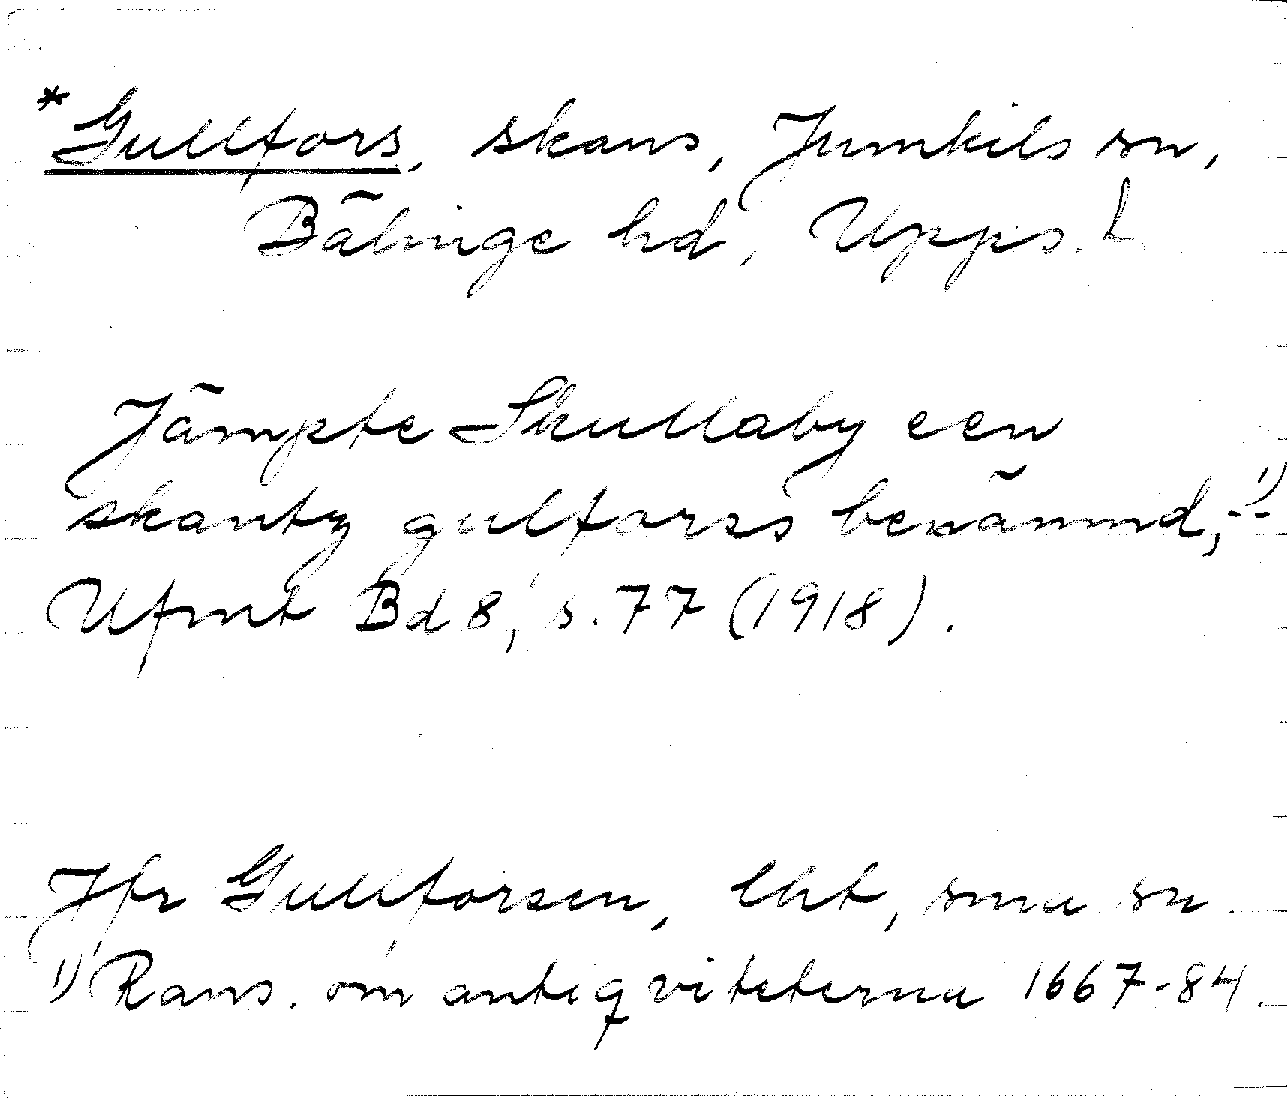 *Gullfors, skans, Jumkils sn,
Bälinge hd, Upps. l.
Jämpte Skullaby een
skantz gulforss benämnd, -"- 1)
Ufmt Bd 8, s. 77 (1918).
Jfr Gullforsen, lht, sma sn.
1) Rans. om antiqviteterna 1667-84.